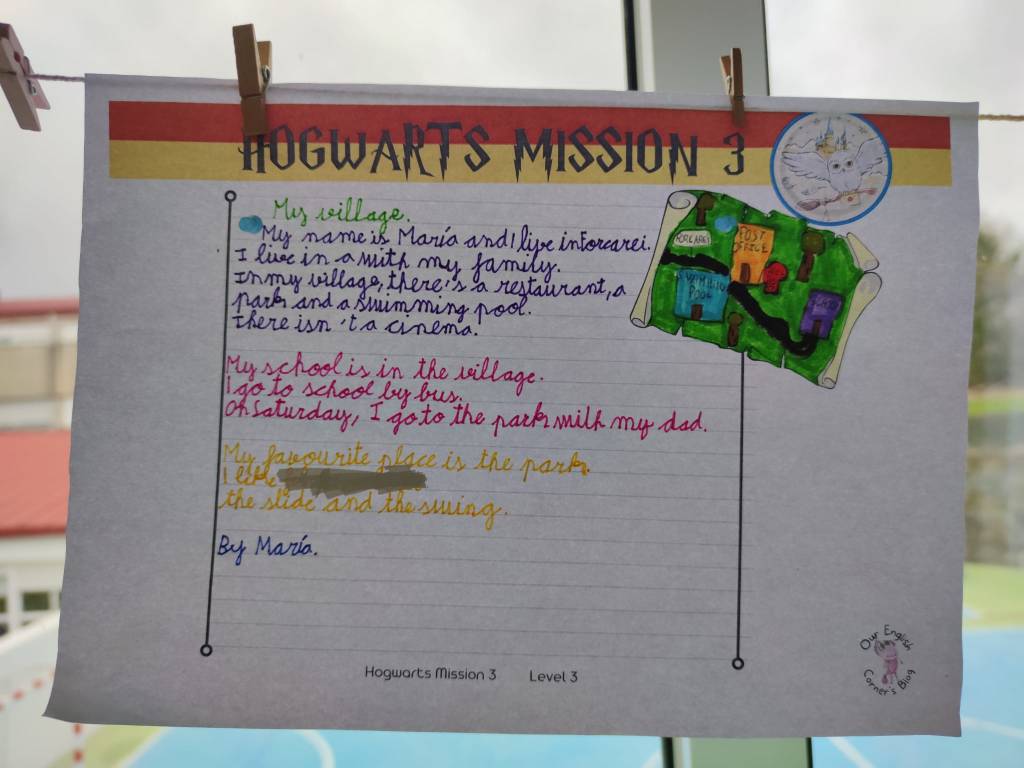 HOGWARTS MISSION 3
My village.
My name is María and I live in Forcarei.
I live in a with my family.
In my village, there's a restaurant, a
park and a swimming pool.
There isn't a cinema.
My school is in the village.
I go to school by bus.
On Saturday, I go to the park with my dad.
My favourite place is the park.
I like
the slide and the swing.
By María.
FORCAREI
POST
OFFICE
SWIMMING
POOL
Hogwarts Mission 3 Level 3
Our English
Corner's Blog